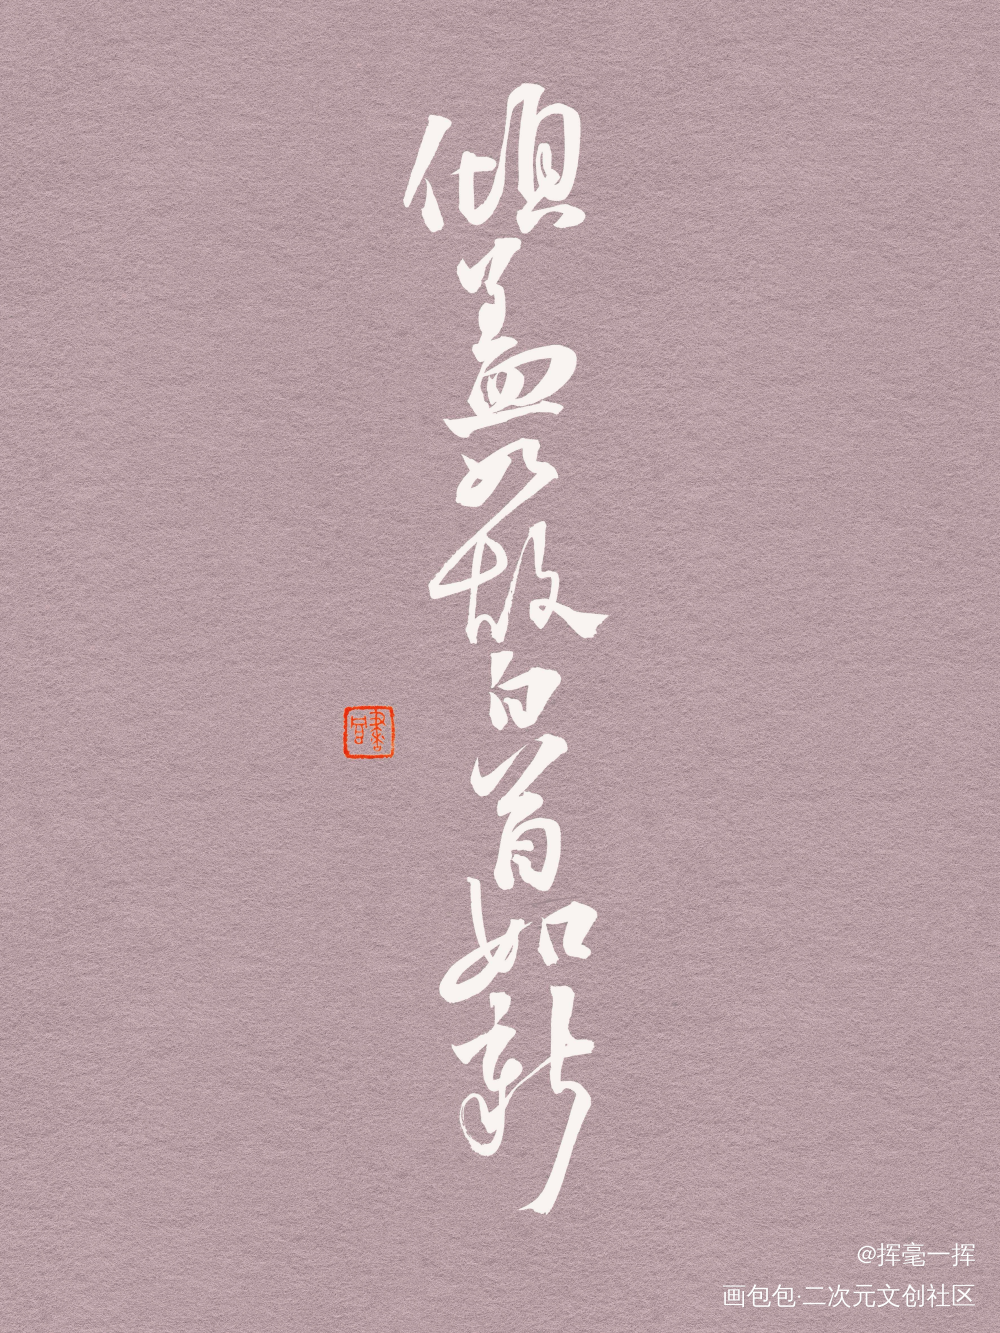 倾盖如故白首如新
@挥毫一挥
画包包·二次元文创社区